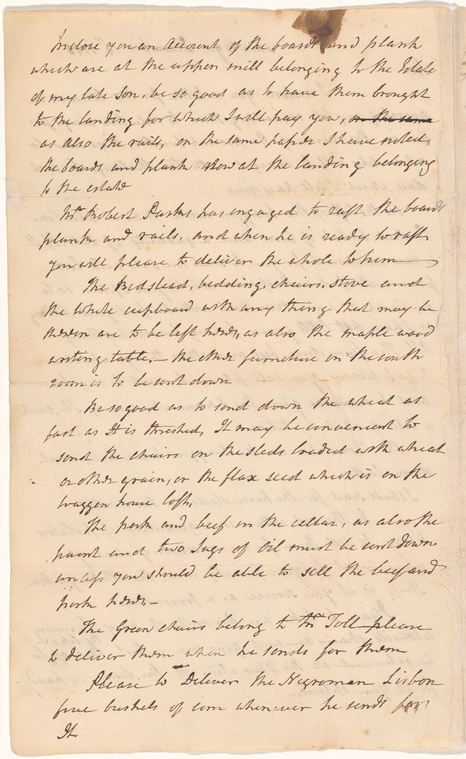 Inclose you an Account of the boards and plank
which are at the upper mill belonging to the Estate
of my late son, be so good as to have them brought
to the landing for which I will pay you, on the same
as also the rails, on the same paper I have noted
the boards and plank now at the landing belonging
to the estate
Mr. Robert Parks has engaged to raft the boards
plank and rails, and when he is ready to raft
you will please to deliver the whole to him
The Bedstead, bedding, chairs, stove and
the whole cupboard with any thing that may be
therein are to be left there, as also the maple wood
writing table, — the other furniture in the south
room is to be sent down
Be so good as to send down the wheat as
fast as It is threshed, It may be convenient to
send the chairs on the sleds loaded with wheat
or other grain, or the flax seed which is on the
waggon house loft,
The pork and beef in the cellar, as also the
paint and two Jugs of Oil must be sent down
unless you should be able to sell the beef and
pork there, —
The Green chairs belong to Mr. Toll please
to deliver them when he sends for them
Please to Deliver the Negroman Lisbon
five bushels of corn whenever he sends for
It